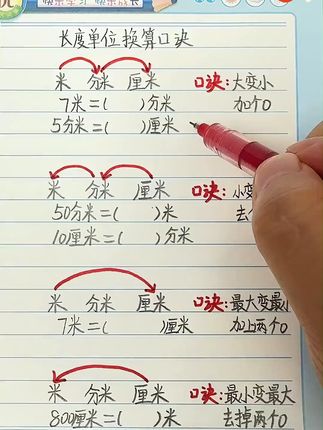 快乐学习 快乐成长
长度单位换算口诀
米 分米 厘米 口诀:大变小
7米=( )分米 加个0
5分米=( )厘米
米 分米 厘米 口诀:小变
50分米=( )米 去
10厘米=( )分米
米 分米 厘米 口诀:最大变最小
7米=( )厘米 加上两个0
米 分米 厘米 口诀:最小变最大
800厘米=( )米 去掉两个0